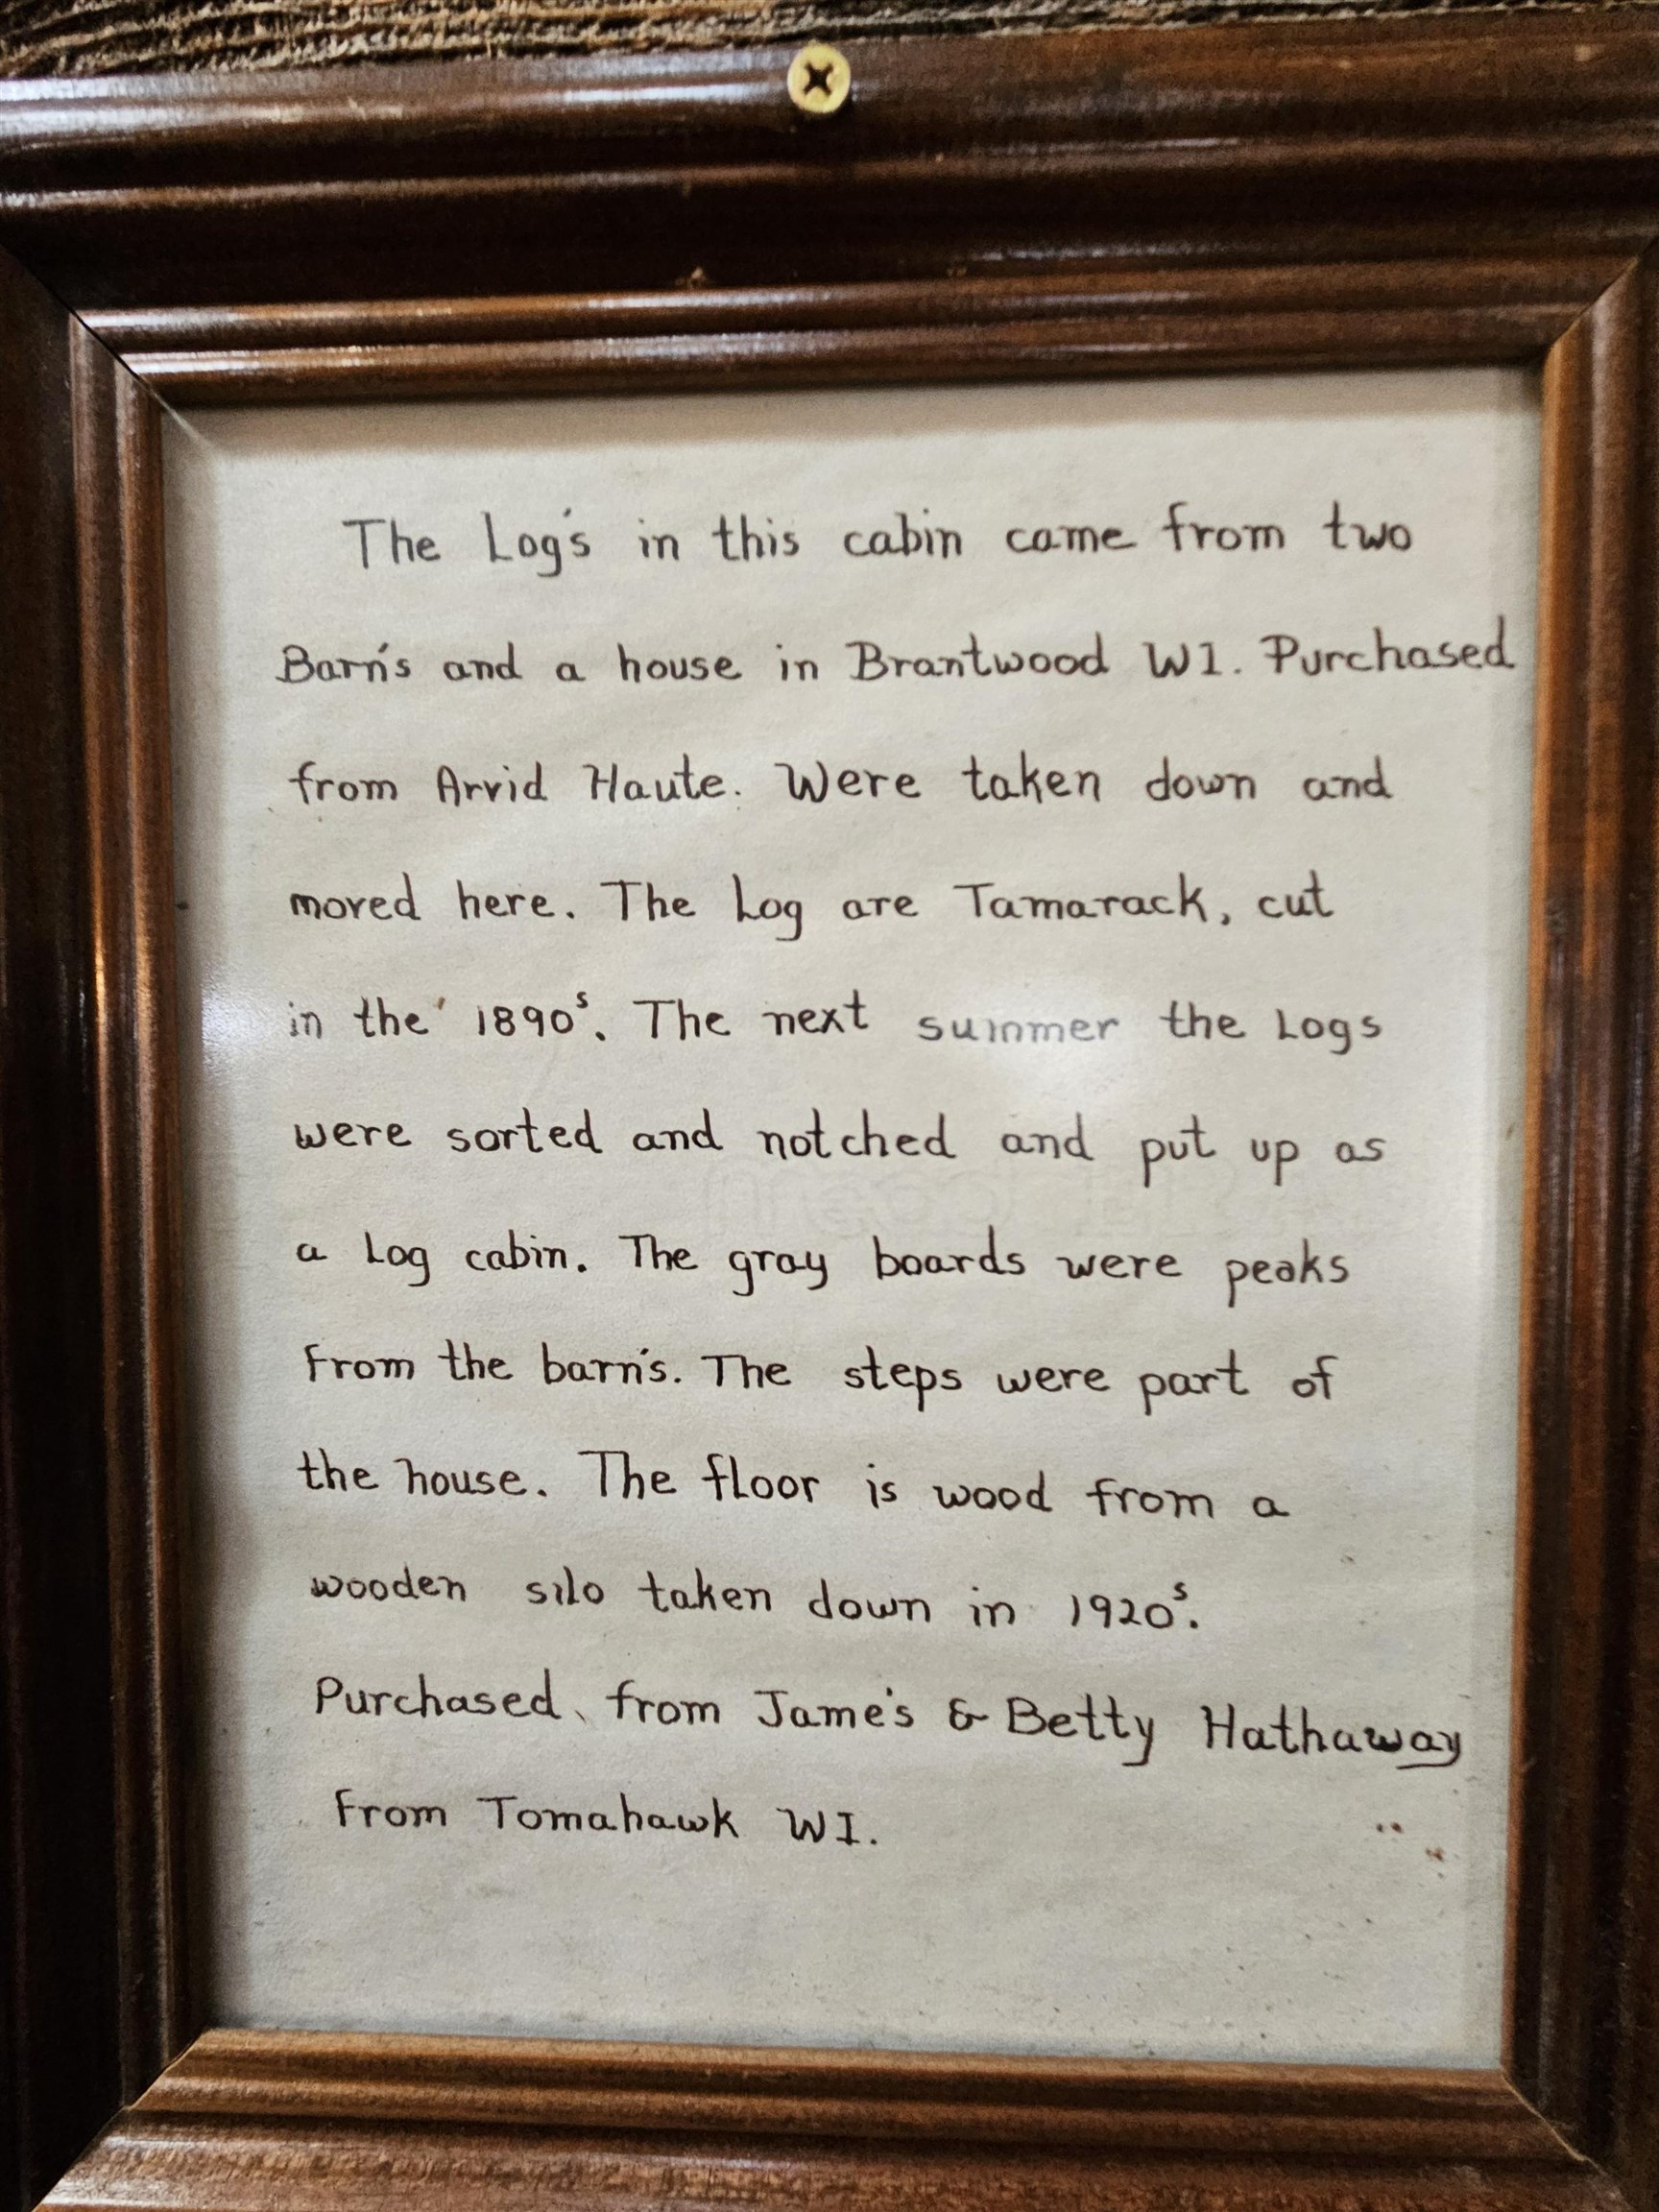 The Log's in this cabin came from two
Barn's and a house in Brantwood WI. Purchased
from Arvid Haute. Were taken down and
moved here. The Log are Tamarack, cut
in the 1890s. The next summer the Logs
were sorted and notched and put up as
a Log cabin. The gray boards were peaks
from the barn's. The steps were part of
the house. The floor is wood from a
wooden silo taken down in 1920s.
Purchased from Jame's & Betty Hathaway
From Tomahawk WI.